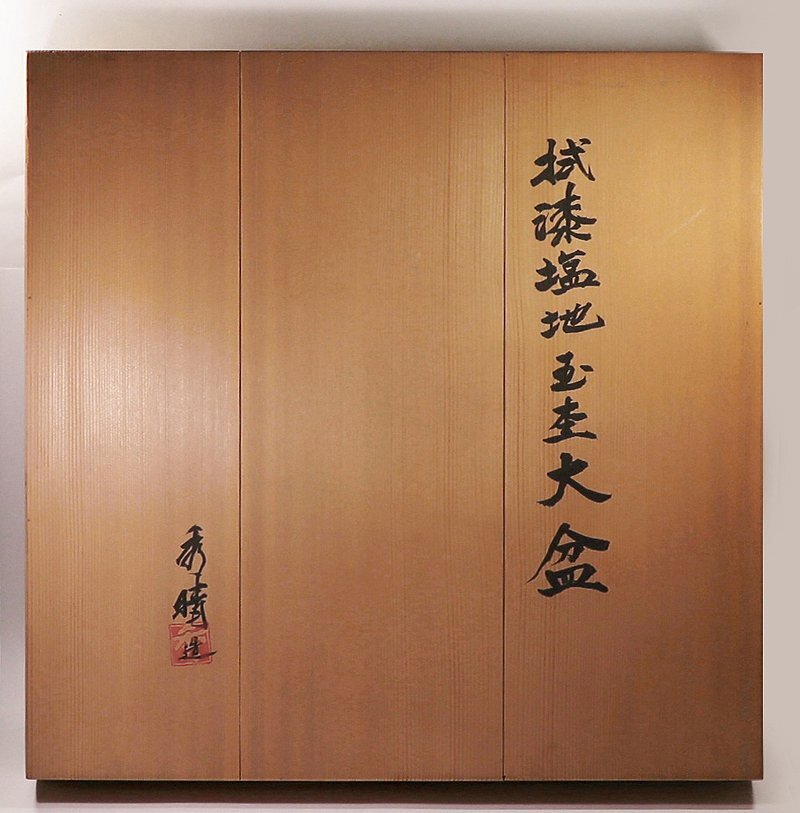 拭漆塩地玉杢大盆
秀晴造